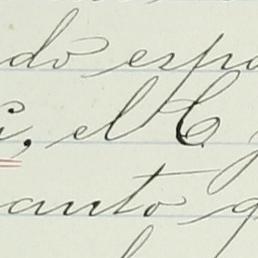 do espa
s, el C
uanto q